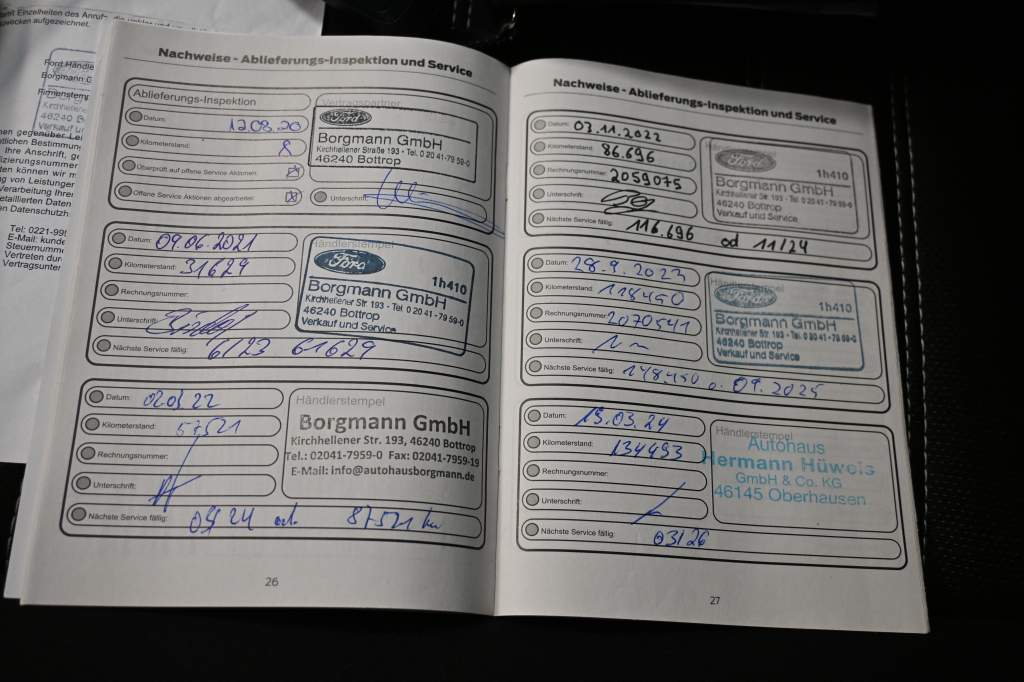 mit Einzelheiten des Anrufs, die
zwecken aufgezeichnet.
Ford Händle
Borgmann G
Firmenstemp
Verkauf und
nen gegenüber
tlichen Bestimmung
Ihre Anschrift,
fizierungsnummer
ten können wir
ng von Leistungen
Verarbeitung Ihrer
etaillierten Daten
n Datenschutz.
Tel: 0221-999
E-Mail: kunde
Steuernumme
Vertreten dur
Vertragsunter
Nachweise - Ablieferungs-Inspektion und Service
Ablieferungs-Inspektion
Datum: 12.08.20
Kilometerstand: 8
Überprüft auf offene Service Aktionen:
Offene Service Aktionen abgearbeitet:
Vertragspartner
Ford
Borgmann GmbH
Kirchhellener Straße 193 • Tel. 0 20 41-79 59-0
46240 Bottrop
Unterschrift:
Datum: 09.06.2021
Kilometerstand: 31629
Rechnungsnummer:
Unterschrift:
Nächste Service fällig: 6/23 61629
Händlerstempel
Ford
1h410
Borgmann GmbH
Kirchhellener Str. 193 • Tel. 0 20 41-79 59-0
46240 Bottrop
Verkauf und Service
Datum: 02.03 22
Kilometerstand: 57521
Rechnungsnummer:
Unterschrift:
Nächste Service fällig: 03/24 od. 87521 km
Händlerstempel
Borgmann GmbH
Kirchhellener Str. 193, 46240 Bottrop
Tel.: 02041-7959-0 Fax: 02041-7959-19
E-Mail: info@autohausborgmann.de
26
Nachweise - Ablieferungs-Inspektion und Service
Datum: 03.11.2022
Kilometerstand: 86.696
Rechnungsnummer: 2059075
Unterschrift:
Nächste Service fällig: 116.696 od 11/24
Ford
1h410
Borgmann GmbH
Kirchhellener Str. 193 • Tel. 0 20 41-79 59-0
46240 Bottrop
Verkauf und Service
Datum: 28.9.2023
Kilometerstand: 118450
Rechnungsnummer: 2070541
Unterschrift:
Nächste Service fällig: 148.450 o. 09.2025
Ford
1h410
Borgmann GmbH
Kirchhellener Str. 193 • Tel. 0 20 41-79 59-0
46240 Bottrop
Verkauf und Service
Datum: 15.03.24
Kilometerstand: 134493
Rechnungsnummer:
Unterschrift:
Nächste Service fällig: 03/26
Händlerstempel
Autohaus
Hermann Hüwels
GmbH & Co. KG
46145 Oberhausen
27